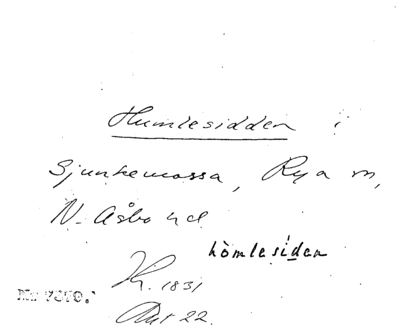 Humlesidden i
Sjunkemossa, Rya sn,
N. Åsbo hd
hòmlesíden
1831
22.